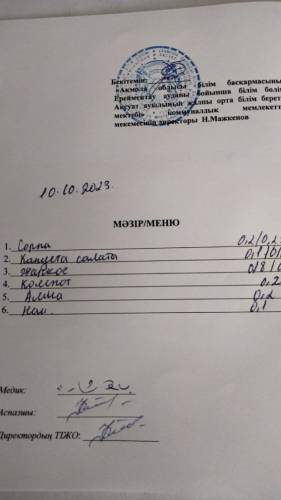 Бекітемін:
«Ақмола облысы білім басқармасының
Ерейментау ауданы бойынша білім бөлімі
Ақсуат ауылының жалпы орта білім беретін
мектебі» коммуналдық мемлекеттік
мекемесінің директоры Н.Мажкенов
10.10.2023.
МӘЗІР/МЕНЮ
1. Сорпа 0,2/0,2
2. Капуста салаты 0,1/0,
3. жаркое 0,18/0
4. Компот 0,2
5. Алма 0,2
6. Нан. 0,1
Медик:
Аспазшы:
Директордың ТІЖО: